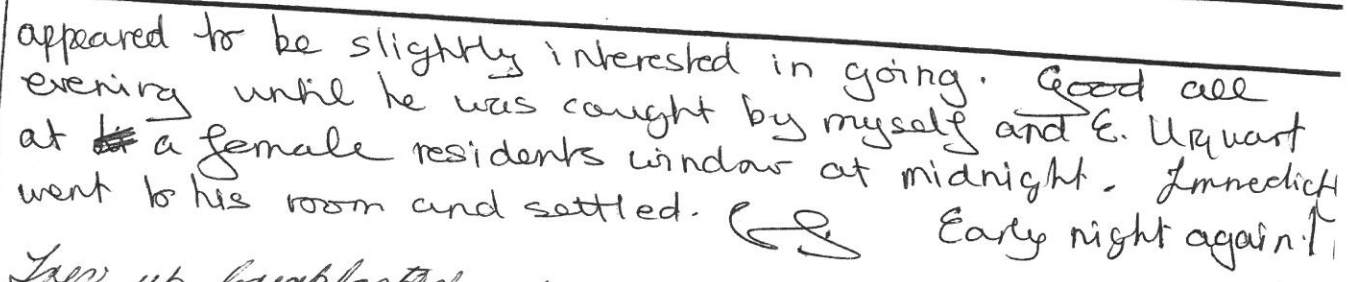 appeared to be slightly interested in going. Good all
evening until he was caught by myself and E. Urquart
at a female residents window at midnight. Immediatl
went to his room and settled. Early night again!
up